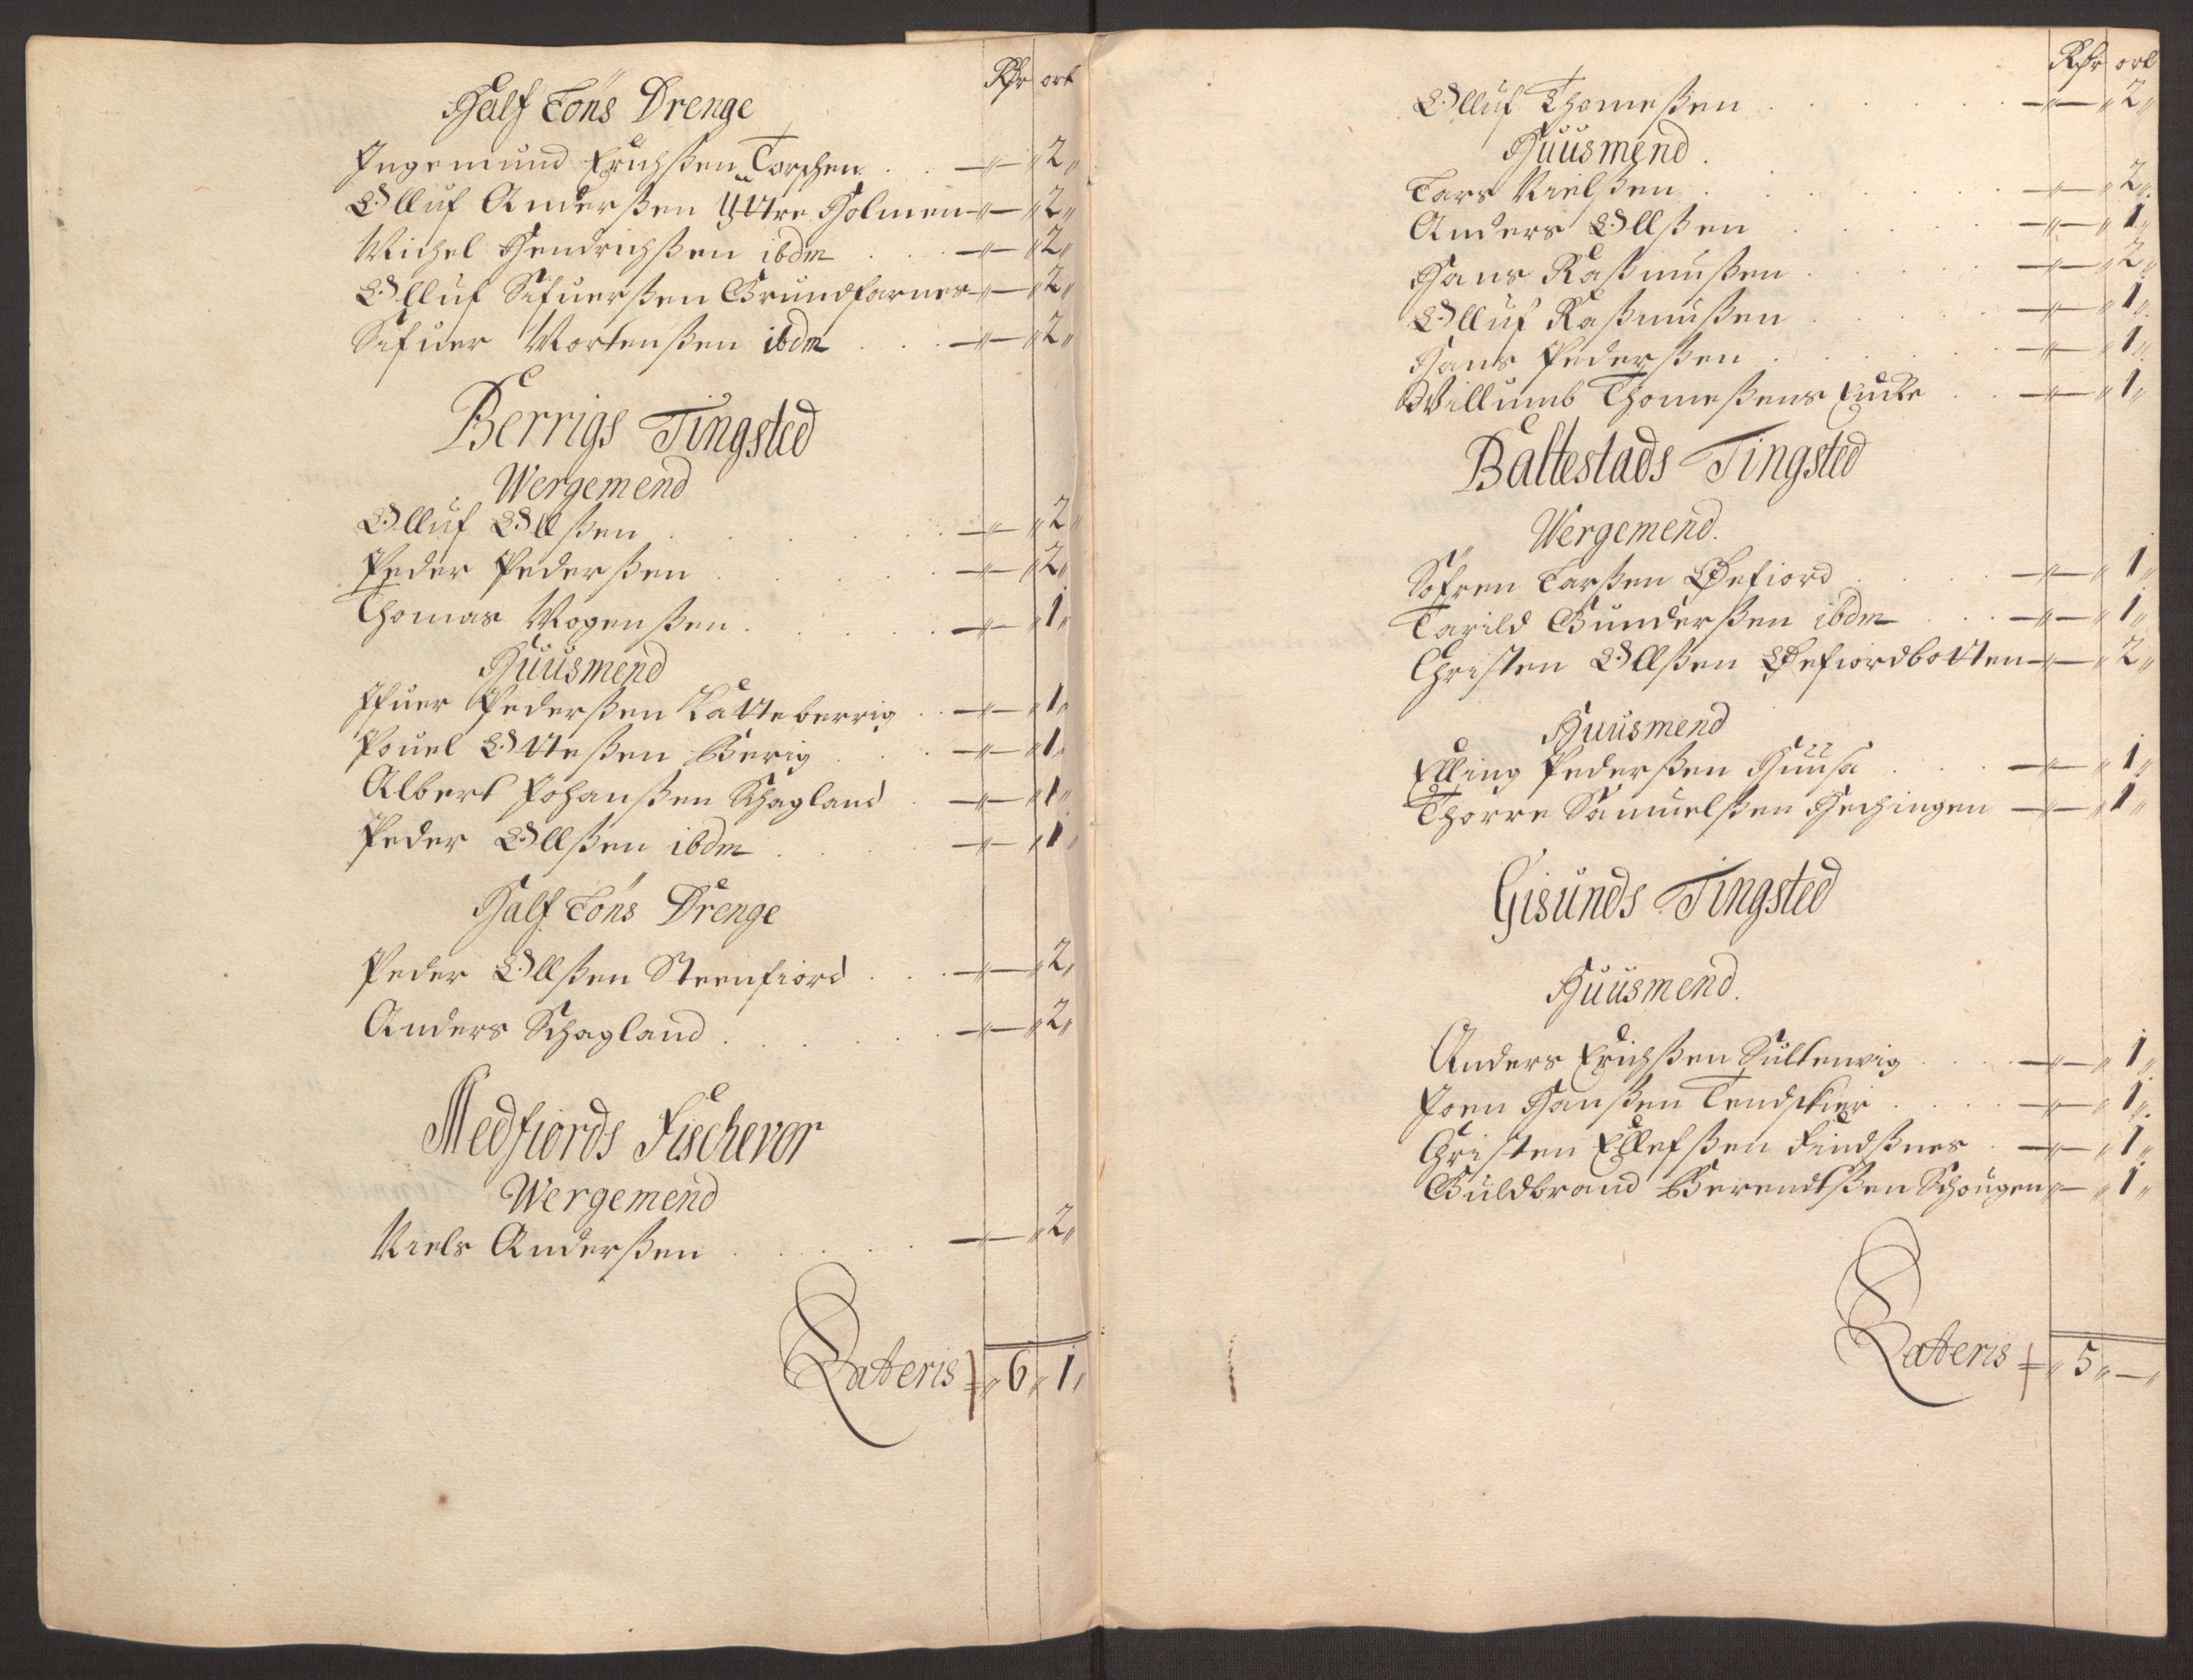 Rdr ort
Half Löns Drenge
Ingemund Erichßen Torschen . . — „ — „ 2 „
Olluf Anderßen Yttre Holmen — „ — „ 2 „
Michel Hendrichßen ibdm . . — „ — „ 2 „
Olluf Sifuerßen Grundfarnes — „ — „ 2 „
Sifuer Mortenßen ibdm . . — „ — „ 2 „
Berrigs Tingsted
Wergemend
Olluf Ollßen . . . . — „ — „ 2 „
Peder Pederßen . . . . — „ — „ 2 „
Thomas Mogenßen . . . . — „ — „ 1 „
Huusmend
Ifuer Pederßen Katteberrig . . — „ — „ 1 „
Pouel Otteßen Berig . . — „ — „ 1 „
Albert Johanßen Schagland . — „ — „ 1 „
Peder Ollßen ibdm . . . — „ — „ 1 „
Half Löns Drenge
Peder Ollßen Steenfiord . . . — „ — „ 2 „
Anders Schagland . . . . — „ — „ 2 „
Medfiords Fischevor
Wergemend
Niels Anderßen . . . . — „ — „ 2 „
Lateris „ 6 „ 1 „
Rdr ort
Olluf Thomeßen . . . . — „ — „ 2 „
Huusmend .
Lars Nielßen . . . . — „ — „ 2 „
Anders Ollßen . . . . — „ — „ 1 „
Hans Raßmußen . . . . — „ — „ 2 „
Olluf Raßmußen . . . . — „ — „ 1 „
Hans Pederßen . . . . — „ — „ 1 „
Willumb Thomeßens Encke . . — „ — „ 1 „
Baltestads Tingsted
Wergemend.
Söfren Larßen Øefiord . . . — „ — „ 1 „
Tarild Gunderßen ibdm . . . — „ — „ 1 „
Christen Ollßen Øefiordbotten — „ — „ 2 „
Huusmend
Elling Pederßen Huusa . . . — „ — „ 1 „
Thorre Samuelßen Hechingen — „ — „ 1 „
Gisunds Tingsted
Huusmend.
Anders Erichßen Sultenvig . . . — „ — „ 1 „
Joen Hanßen Lendskier . . . — „ — „ 1 „
Christen Ellefßen Findßnes . — „ — „ 1 „
Guldbrand Berendtßen Schougen „ — „ 1 „
Lateris „ 5 „ — „